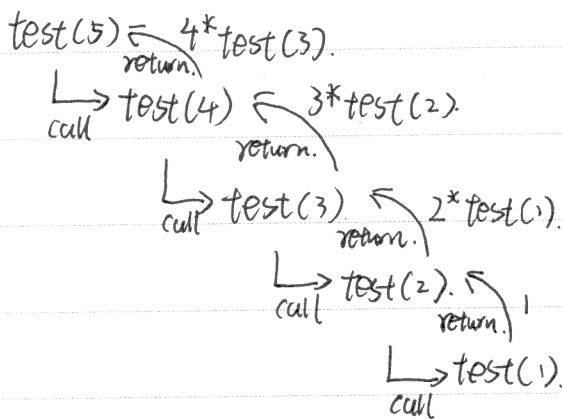 test(5) 4*test(3).
return.
call test(4) 3*test(2).
return.
call test(3) 2*test(1).
return.
call test(2). 1
return.
call test(1).